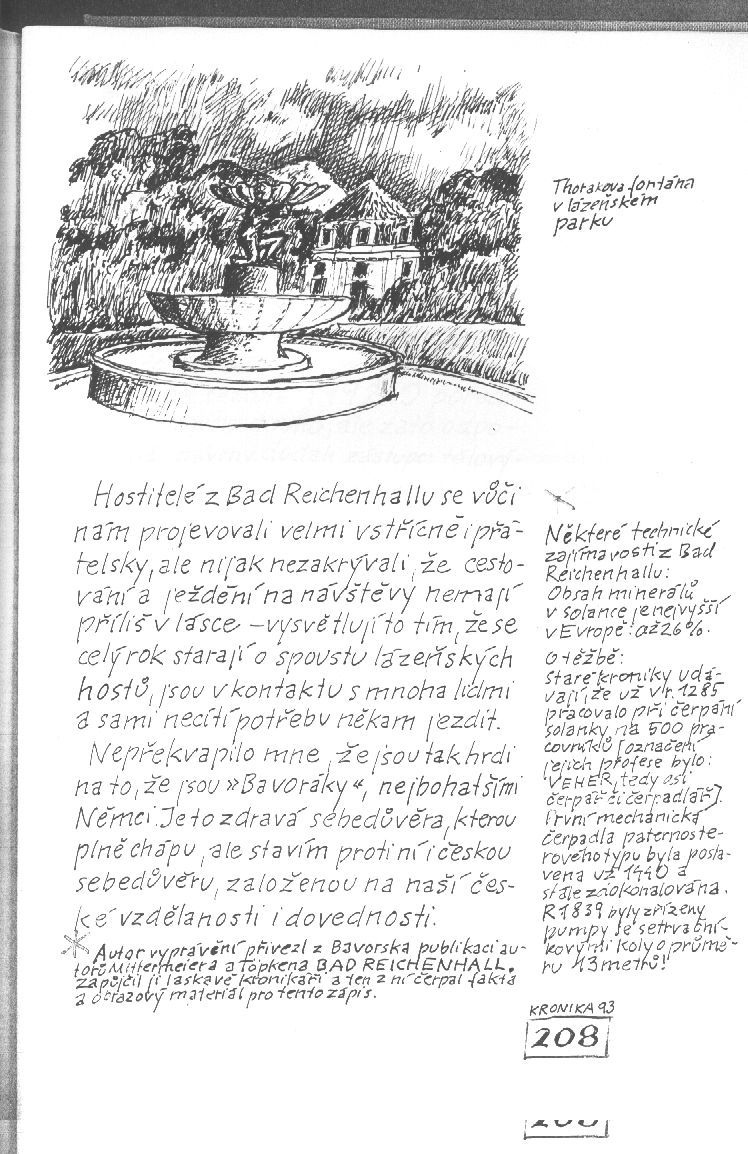 Thorakova fontána
v lázeňském
parku
Hostitelé z Bad Reichenhallu se vůči
nám projevovali velmi vstřícně i přá-
telsky, ale nijak nezakrývali, že cesto-
vání a ježdění na návštěvy nemají
příliš v lásce – vysvětlují to tím, že se
celý rok starají o spoustu lázeňských
hostů, jsou v kontaktu s mnoha lidmi
a sami necítí potřebu někam jezdit.
Nepřekvapilo mne, že jsou tak hrdi
na to, že jsou »Bavoráky«, nejbohatšími
Němci. Je to zdravá sebedůvěra, kterou
plně chápu, ale stavím proti ní i českou
sebedůvěru, založenou na naší čes-
ké vzdělanosti i dovednosti.
Autor vyprávění přivezl z Bavorska publikaci au-
torů Mittermeiera a Töpkena BAD REICHENHALL.
Zapůjčil ji laskavě kronikáři a ten z ní čerpal fakta
a obrazový materiál pro tento zápis.
Některé technické
zajímavosti z Bad
Reichenhallu:
Obsah minerálů
v solance je nejvyšší
v Evropě: až 26%.
O těžbě:
Staré kroniky udá-
vají, že už v r. 1285
pracovalo při čerpání
solanky na 500 pra-
covníků [označení
jejich profese bylo:
VEHER, tedy asi
čerpář či čerpadlář].
První mechanická
čerpadla paternoste-
rového typu byla posta-
vena už 1440 a
stále zdokonalována.
R 1839 byly zřízeny
pumpy se setrvační-
kovými koly o průmě-
ru 13 metrů!
KRONIKA 93
208
208